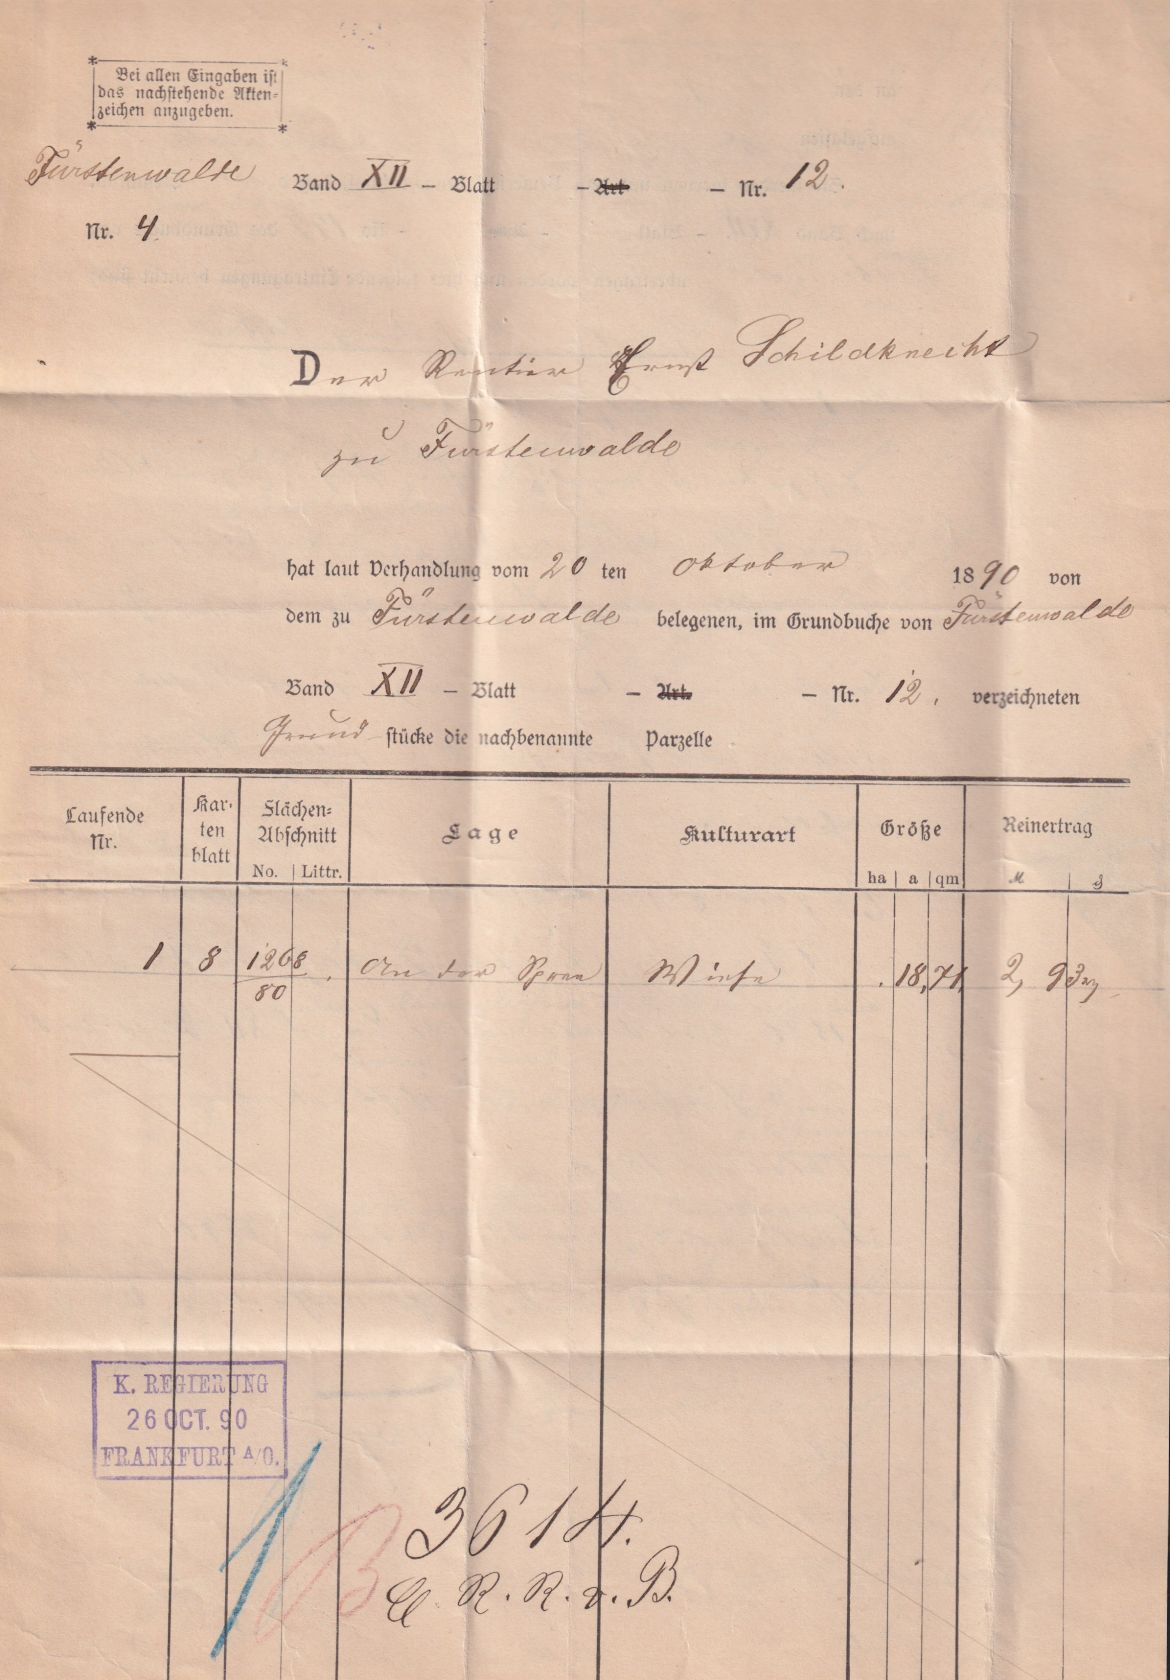 Bei allen Eingaben ist
das nachstehende Akten-
zeichen anzugeben.
Fürstenwalde Band XII – Blatt – Art – Nr. 12.
Nr. 4
Der Rentier Ernst Schildknecht
zu Fürstenwalde
hat laut Verhandlung vom 20 ten Oktober 1890 von
dem zu Fürstenwalde belegenen, im Grundbuche von Fürstenwalde
Band XII – Blatt – Art. – Nr. 12. verzeichneten
Grund stücke die nachbenannte Parzelle
Laufende Nr. Kar- ten blatt Flächen- Abschnitt No. Littr. Lage Kulturart Größe ha a qm Reinertrag M
1 8 1268/80. An der Spree Wiese . 18, 71, 2, 93
K. REGIERUNG
26 OCT. 90
FRANKFURT A/O.
B
3614.
R. R. v. B.